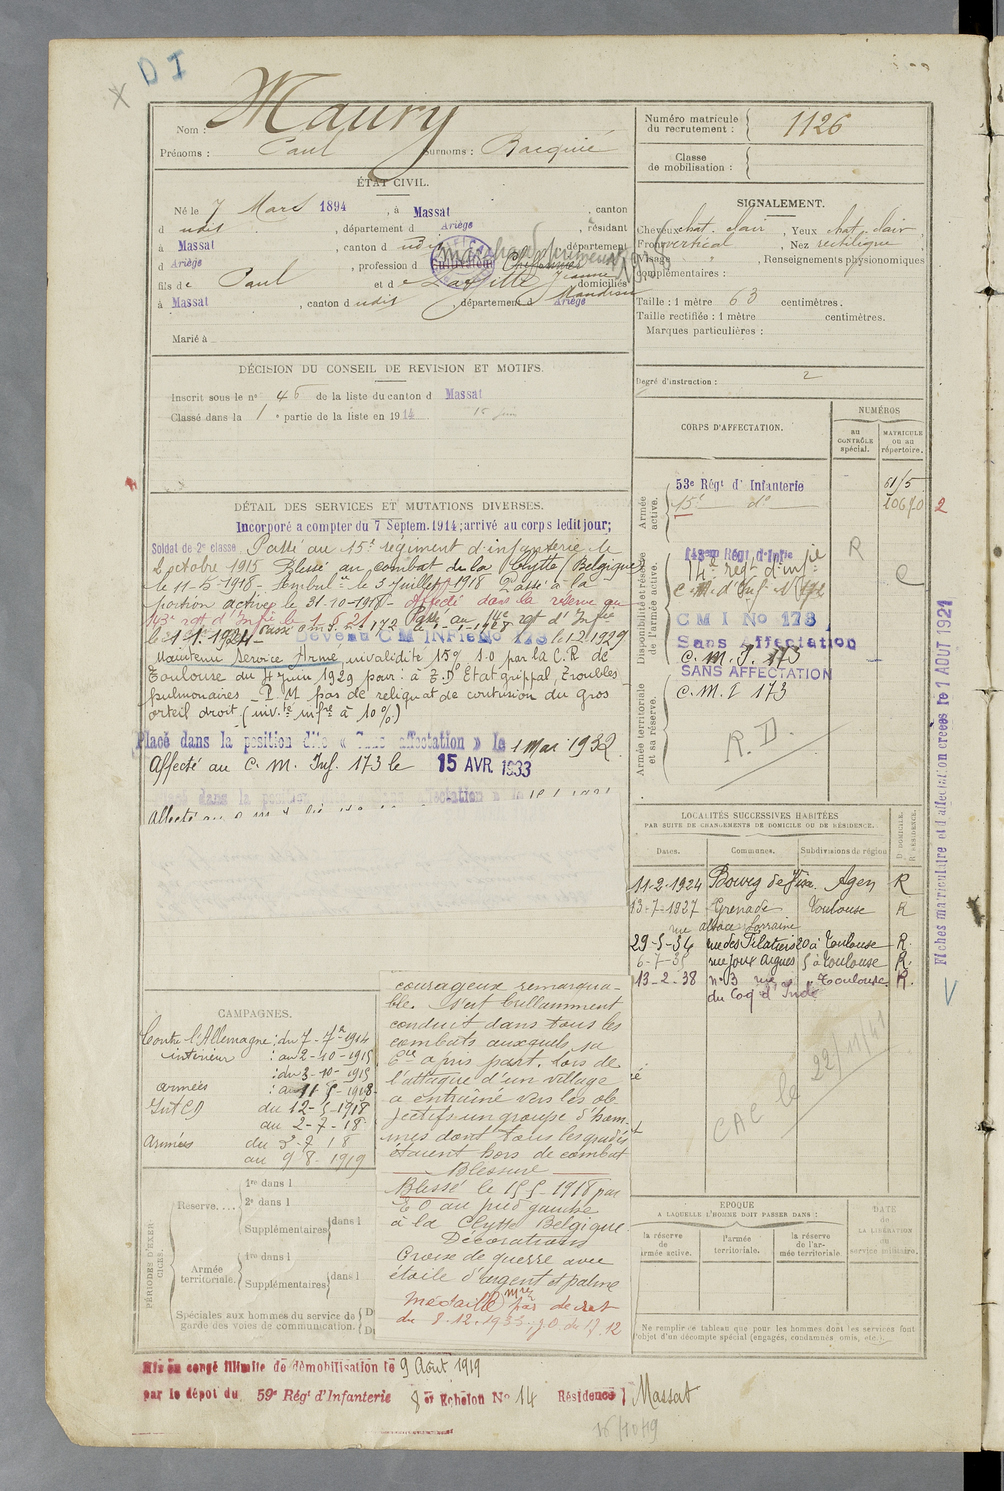 D I
Maury
Nom :
Prénoms : Paul Surnoms : Bacquié
Numéro matricule du recrutement : 1126
Classe de mobilisation :
ÉTAT CIVIL.
Né le 7 Mars 1894, à Massat, canton
d udit, département d Ariège, résidant
à Massat, canton d udit, département
d Ariège, profession d Cultivateur
fils de Paul et de Laffitte Jeanne domiciliés
à Massat, canton d udit, département d Ariège
Marié à
SIGNALEMENT.
Cheveux chat. clair, Yeux chat. clair
Front vertical, Nez rectiligne
Visage, Renseignements physionomiques
complémentaires :
Taille : 1 mètre 63 centimètres.
Taille rectifiée : 1 mètre centimètres.
Marques particulières :
Degré d'instruction : 2
DÉCISION DU CONSEIL DE REVISION ET MOTIFS.
Inscrit sous le n° 46 de la liste du canton d Massat
Classé dans la 1 e partie de la liste en 1914
CORPS D'AFFECTATION.
NUMÉROS
au CONTRÔLE spécial.
MATRICULE ou au répertoire.
Armée active.
53e Régt d'Infanterie
15e do
Disponibilité et réserve de l'armée active.
14e regt d'infie
C M I No 178
Sans Affectation
C. M. I. 173
SANS AFFECTATION
Armée territoriale et sa réserve.
C. M. I 173
R. D.
R
2
DÉTAIL DES SERVICES ET MUTATIONS DIVERSES.
Incorporé a compter du 7 Septem. 1914; arrivé au corps ledit jour;
Soldat de 2e classe. Passé au 15e régiment d'infanterie le
2 octobre 1915 Blessé au combat de la Clytte (Belgique)
le 11-5-1918 - le 3 Juillet 1918 Passé à la
portion active le 31-10-1918 - Affecté dans la réserve au
143e rgt d'Infie Passé au 14e rgt d'Infie
Devenu C M INFie No 178 le 1.2.1929
Maintenu Service Armé, invalidité 15% S.O par la C.R de
Toulouse du 4 Juin 1929 pour : à E.D Etat grippal, troubles
pulmonaires - P.M pas de reliquat de contusion du gros
orteil droit (inv.té infre à 10%)
Placé dans la position dite « Sans affectation » le 1 Mai 1932
Affecté au C. M. Inf. 173 le 15 AVR. 1933
LOCALITÉS SUCCESSIVES HABITÉES
PAR SUITE DE CHANGEMENTS DE DOMICILE OU DE RÉSIDENCE.
Dates. Communes. Subdivisions de région D. DOMICILE. R. RÉSIDENCE.
11-2-1924 Bourg de Visa. Agen R
13-7-1927 Grenade Toulouse R
rue alsace Lorraine
29-5-34 rue des Filatiers 20 à Toulouse R.
6-7-35 rue Joux Aigues 5 à Toulouse R.
13-2-38 n°3 rue du Coq d'Inde Toulouse. R.
CAC le 22/11/41
Fiches matriculaire et d'affectation créées le 1 AOUT 1921
CAMPAGNES.
Contre l'Allemagne : du 7-7re-1914
intérieur : au 2-10-1915
armées : du 3-10-1915
: au 11-5-1918
Int CD du 12-5-1918
au 2-7-18
Armées du 3-7 18
au 9 8-1919
courageux remarqua-
ble. S'est brillamment
conduit dans tous les
combats auxquels sa
Cie a pris part. Lors de
l'attaque d'un village
a entraîné vers les ob
jectifs un groupe d'hom-
mes dont tous les gradés
étaient hors de combat
Blessure
Blessé le 15 5-1918 par
E O au pied gauche
à la Clytte Belgique
Décorations
Croix de guerre avec
étoile d'argent et palme
Médaille mre par decret
du 8.12.1933 J.O du 17.12
PÉRIODES D'EXERCICES.
Réserve....
1re dans l
2e dans l
Supplémentaires dans l
Armée territoriale.
1re dans l
Supplémentaires dans l
Spéciales aux hommes du service de
garde des voies de communication.
EPOQUE
A LAQUELLE L'HOMME DOIT PASSER DANS :
la réserve de l'armée active.
l'armée territoriale.
la réserve de l'armée territoriale.
DATE de LA LIBÉRATION du service militaire.
Ne remplir ce tableau que pour les hommes dont les services font
l'objet d'un décompte spécial (engagés, condamnés, omis, etc.).
Mis en congé illimité de démobilisation le 9 Août 1919
par le dépôt du 59e Régt d'Infanterie 8 er Echelon No 14 Résidence Massat
16/10/19